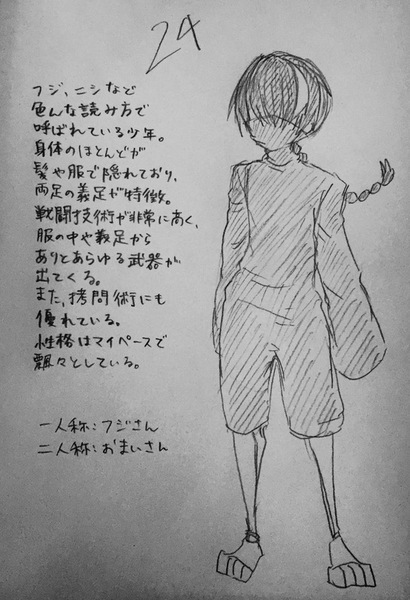 24
フジ、ニシなど
色んな読み方で
呼ばれている少年。
身体のほとんどが
髪や服で隠れており、
両足の義足が特徴。
戦闘技術が非常に高く、
服の中や義足から
ありとあらゆる武器が
出てくる。
また、拷問術にも
優れている。
性格はマイペースで
飄々としている。
一人称：フジさん
二人称：おまいさん